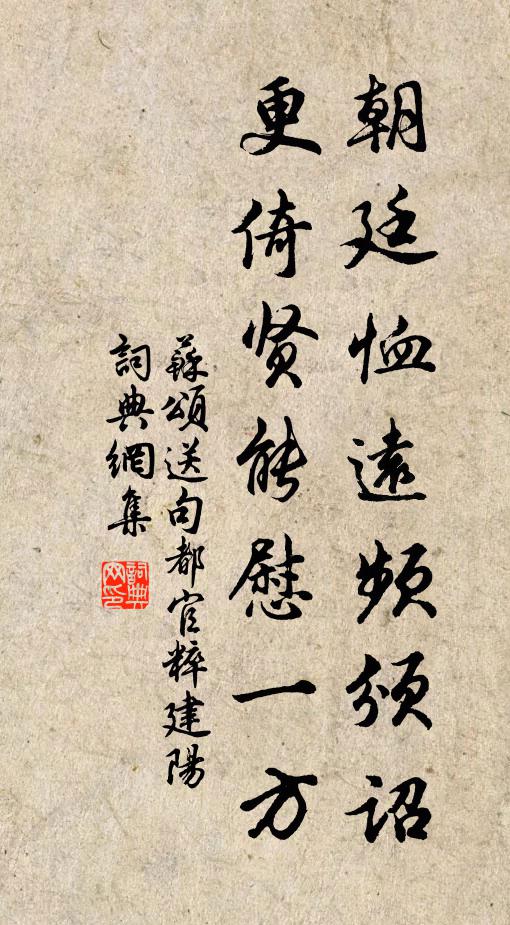 朝廷恤遠頻頒詔
更倚贤能慰一方
蘇頌送句都官粹建陽
詞典網集
詞典
网印